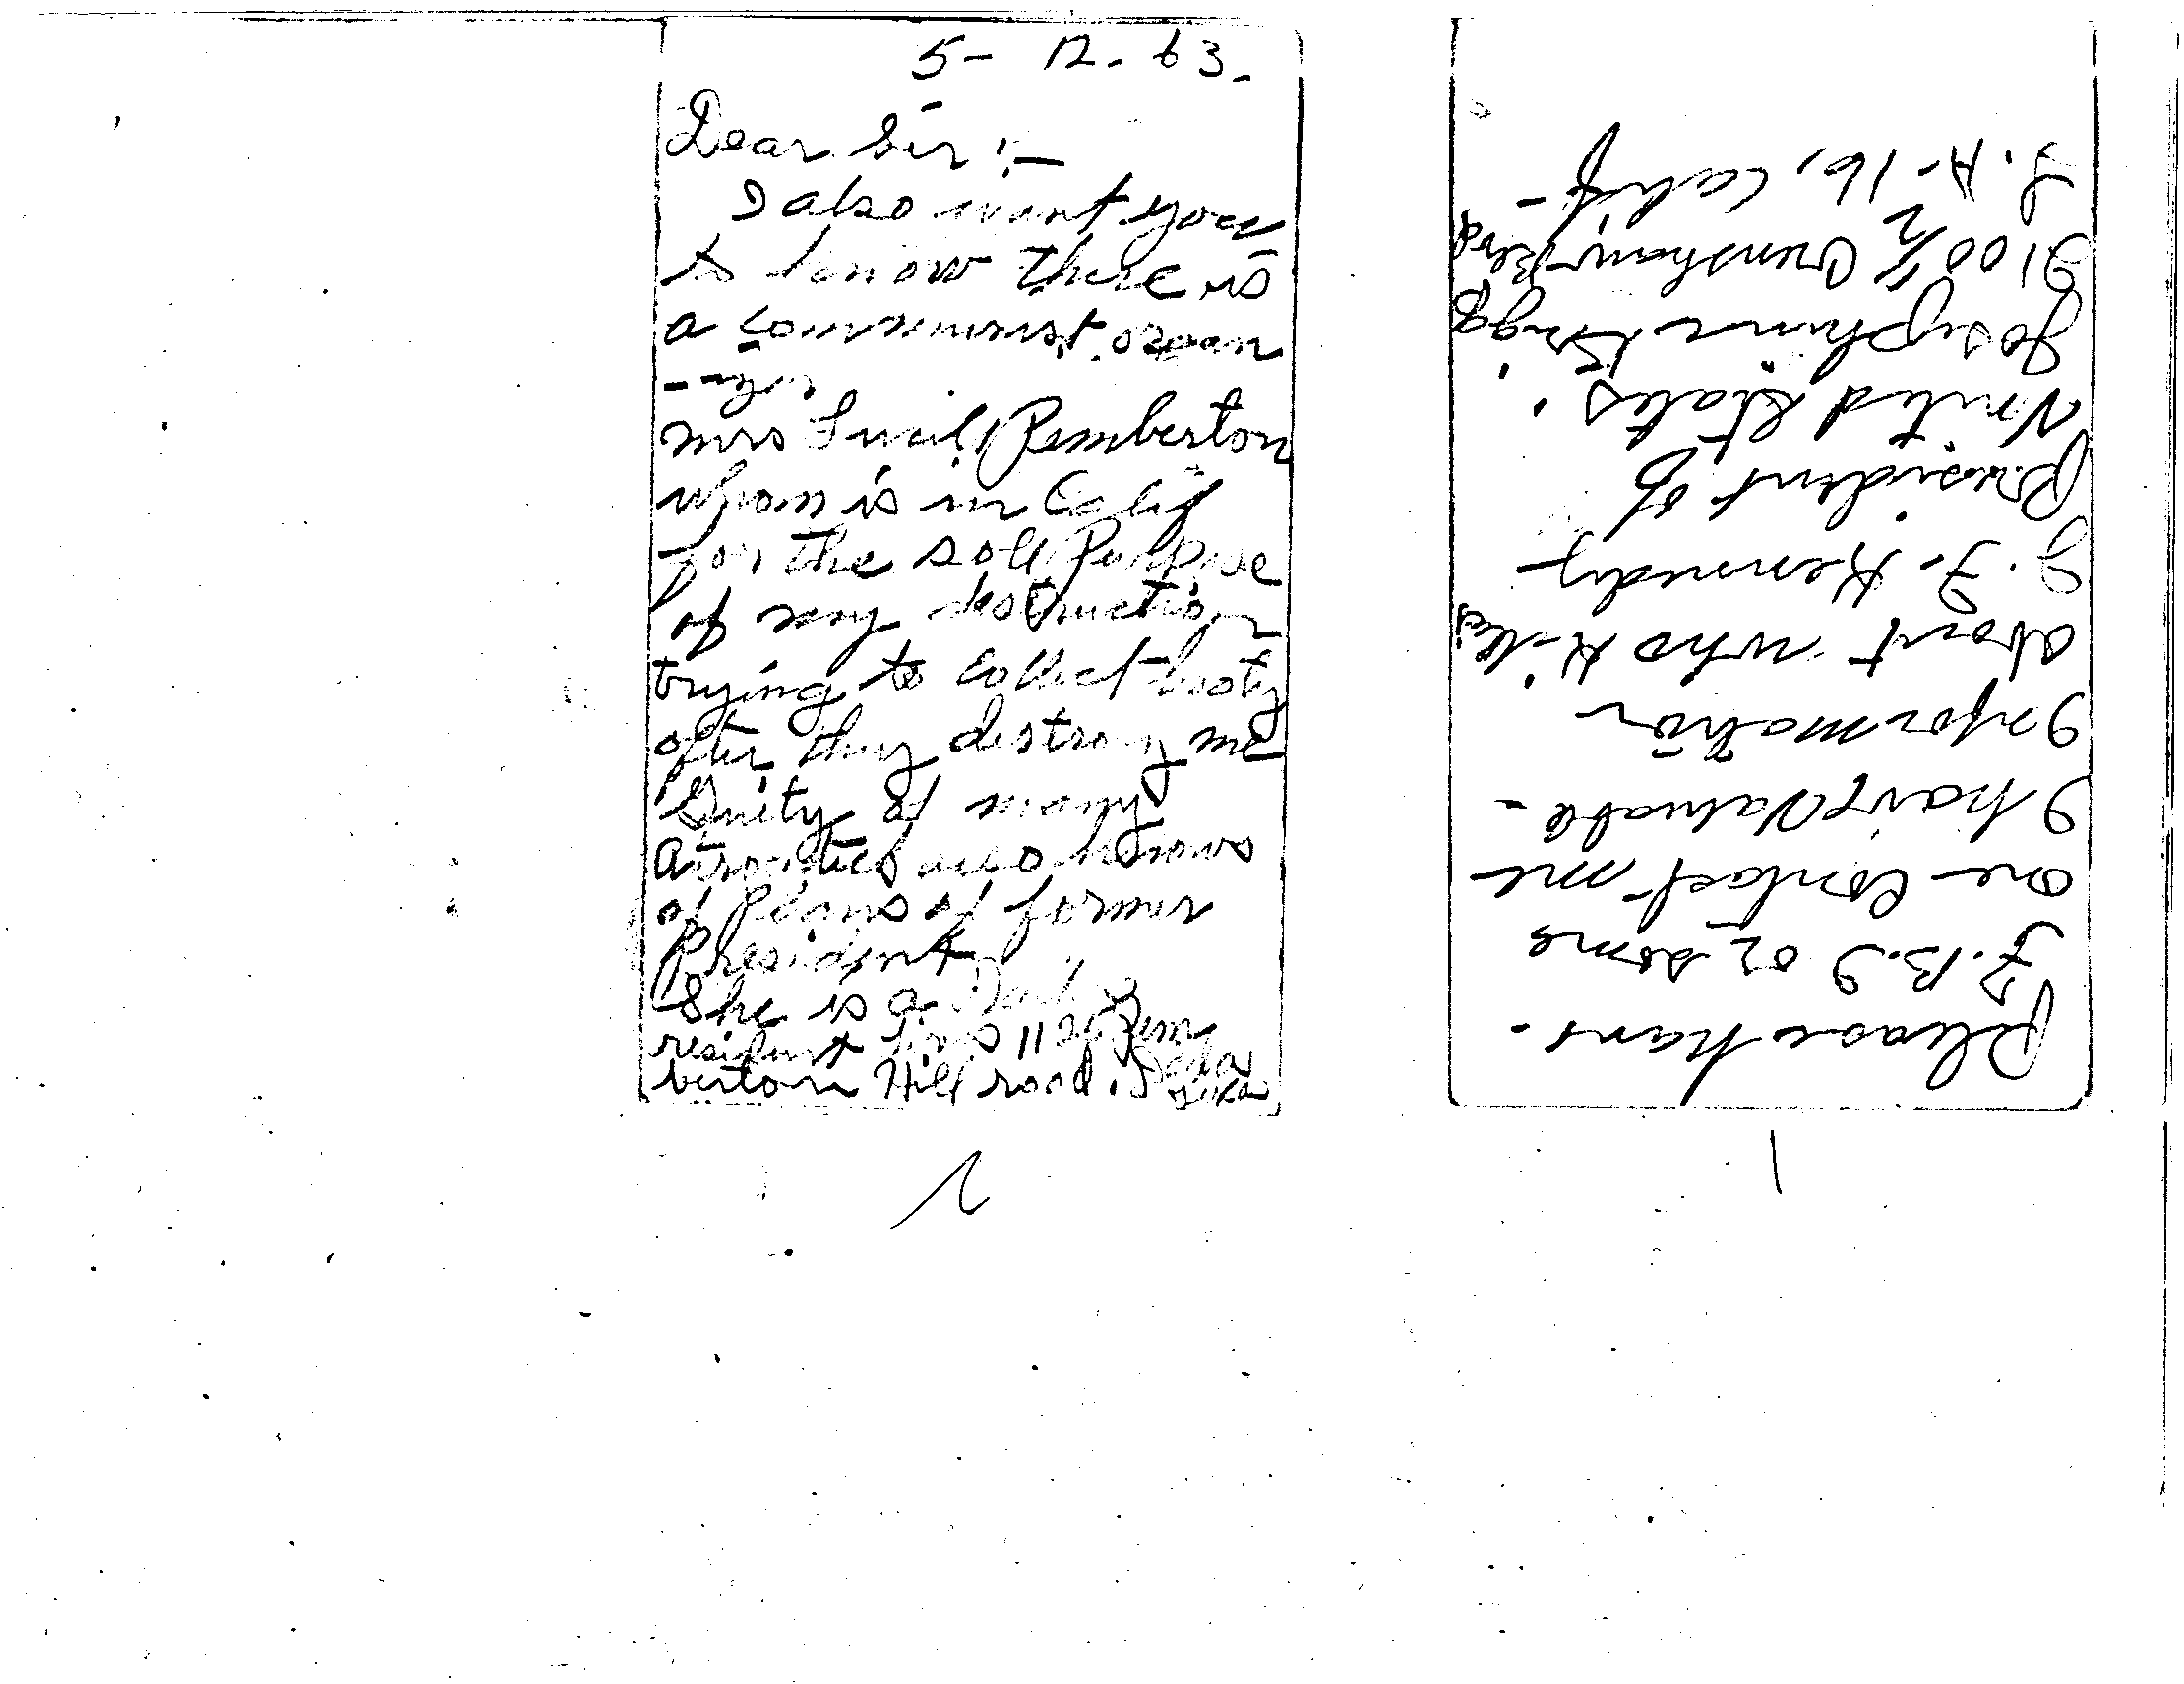 5- 12-63-
Dear Sir:-
I also want you
to know there is
a communist organ
--izer
mrs Lucile Pemberton
whom is in Calif
for the sole Purpose
of my destruction
trying to collect booty
after they destroy me
Guilty of many
atrocities also knows
of Plans of former
President
She is a
resident 1126 Pem
berton Hill road.
2
Please have.
F.B.I or some
one Contact me
I have Valuable-
Information
about who Kills
J. F. Kennedy-
President of
United States.
Josephine
2100 1/2 Crenshaw, Blvd
L. A- 16, Calif-
1